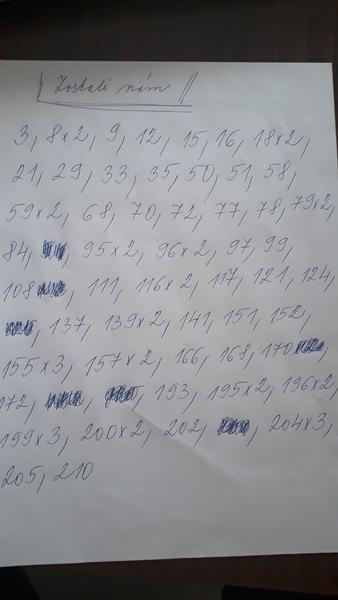 Zostali nám
3, 8x2, 9, 12, 15, 16, 18x2,
21, 29, 33, 35, 50, 51, 58,
59x2, 68, 70, 72, 77, 78, 79x2,
84, 95x2, 96x2, 97, 99,
108, 111, 116x2, 117, 121, 124,
137, 139x2, 141, 151, 152,
155x3, 157x2, 166, 168, 170,
172, 193, 195x2, 196x2,
199x3, 200x2, 202, 204x3,
205, 210